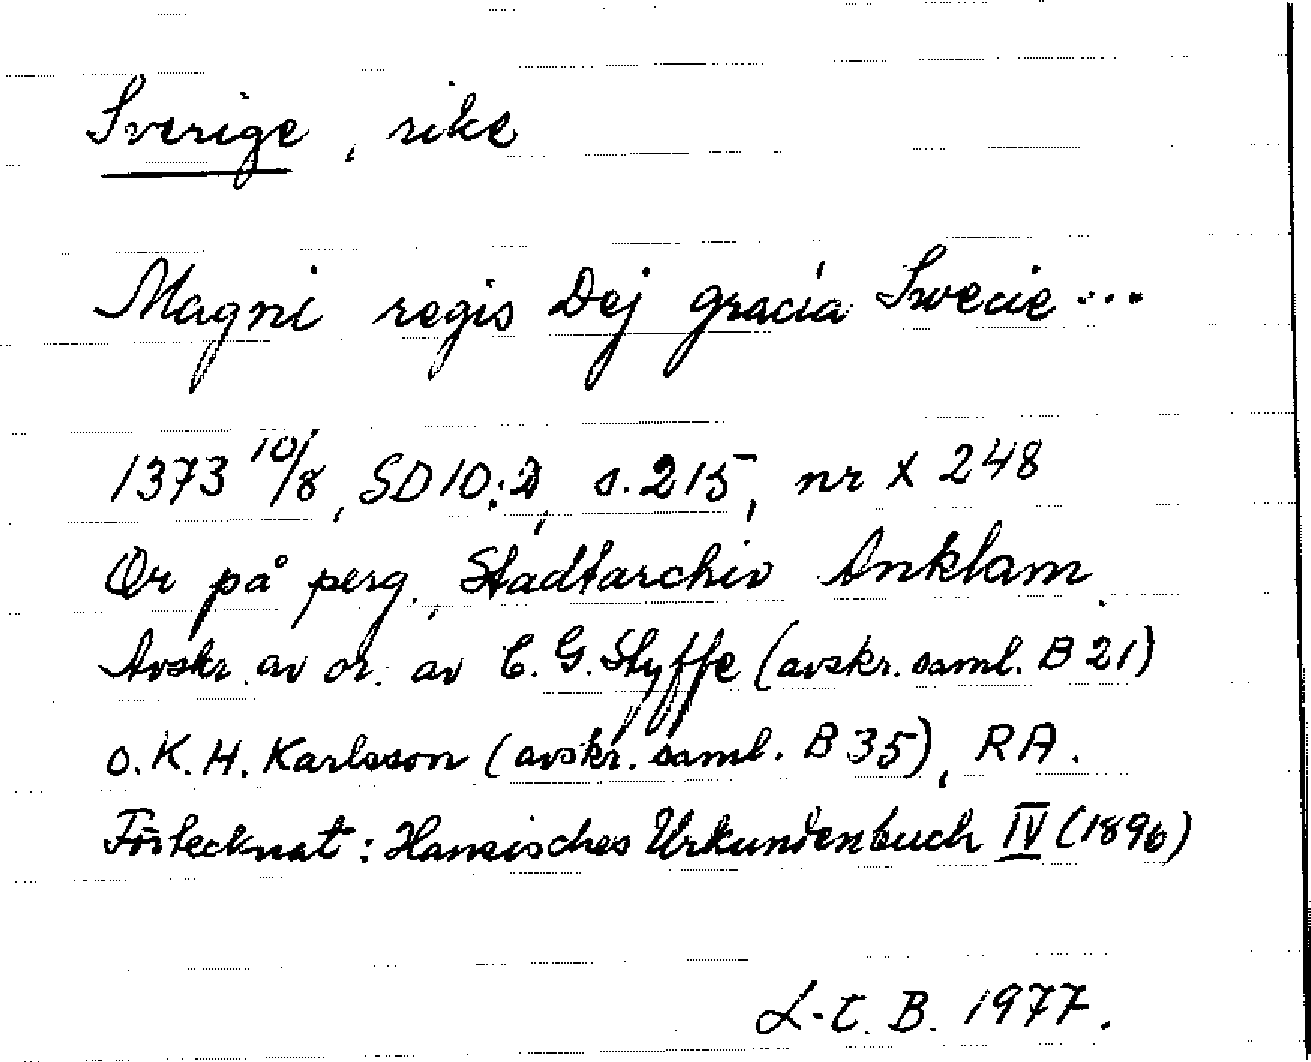 Sverige, rike
Magni regis Dej gracia Swecie ...
1373 10/8, SD 10:2, s. 215, nr X 248
Or på perg., Stadtarchiv Anklam.
Avskr. av or. av C. G. Styffe (avskr. saml. B 21)
o. K. H. Karlsson (avskr. saml. B 35), RA.
Förtecknat: Hansisches Urkundenbuch IV (1896)
L-C. B. 1977.